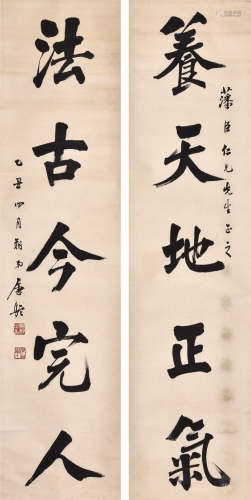 養天地正氣
藩臣仁兄先生正之
法古今完人
乙丑四月